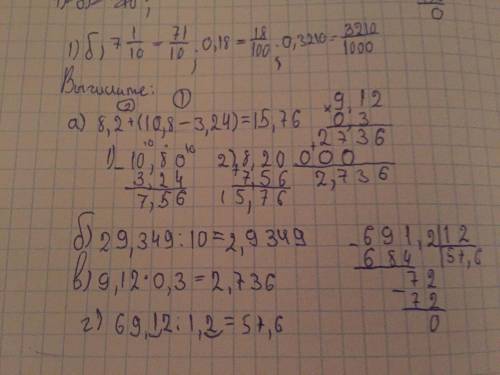 0
1) б) 7 1/10 = 71/10 ; 0,18 = 18/100 ; 0,3210 = 3210/1000
Вычислите:
② ①
а) 8,2+(10,8-3,24)=15,76
1) 10,80
- 3,24
7,56
2) 8,20
7,56
15,76
× 9,12
0,3
+ 2736
000
2,736
б) 29,349:10=2,9349
в) 9,12·0,3=2,736
г) 69,12:1,2=57,6
- 691,2 | 12
684 | 57,6
- 72
72
0